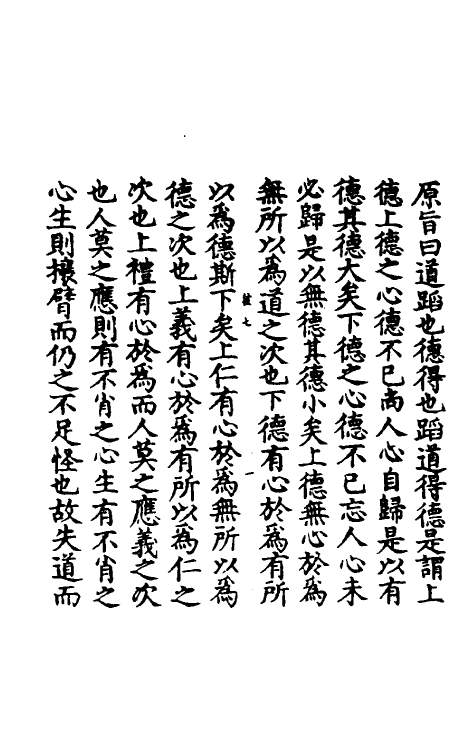 原旨曰道蹈也德得也蹈道得德是謂上
德上德之心德不已尚人心自歸是以有
德其德大矣下德之心德不已忘人心未
必歸是以無德其德小矣上德無心於為
無所以為道之次也下德有心於為有所
以為德斯下矣上仁有心於為無所以為
德之次也上義有心於為有所以為仁之
次也上禮有心於為而人莫之應義之次
也人莫之應則有不肖之心生有不肖之
心生則攘臂而仍之不足怪也故失道而